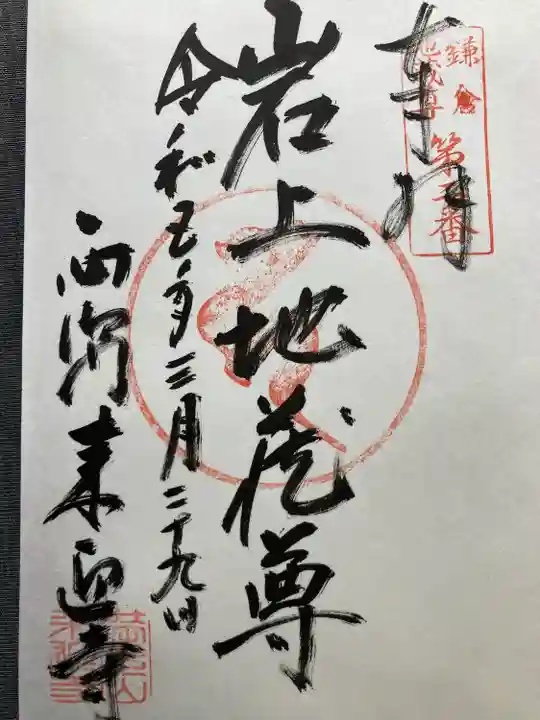 鎌倉
地蔵尊
第五番
奉拝
岩上地蔵尊
令和五年三月二十九日
西御門来迎寺